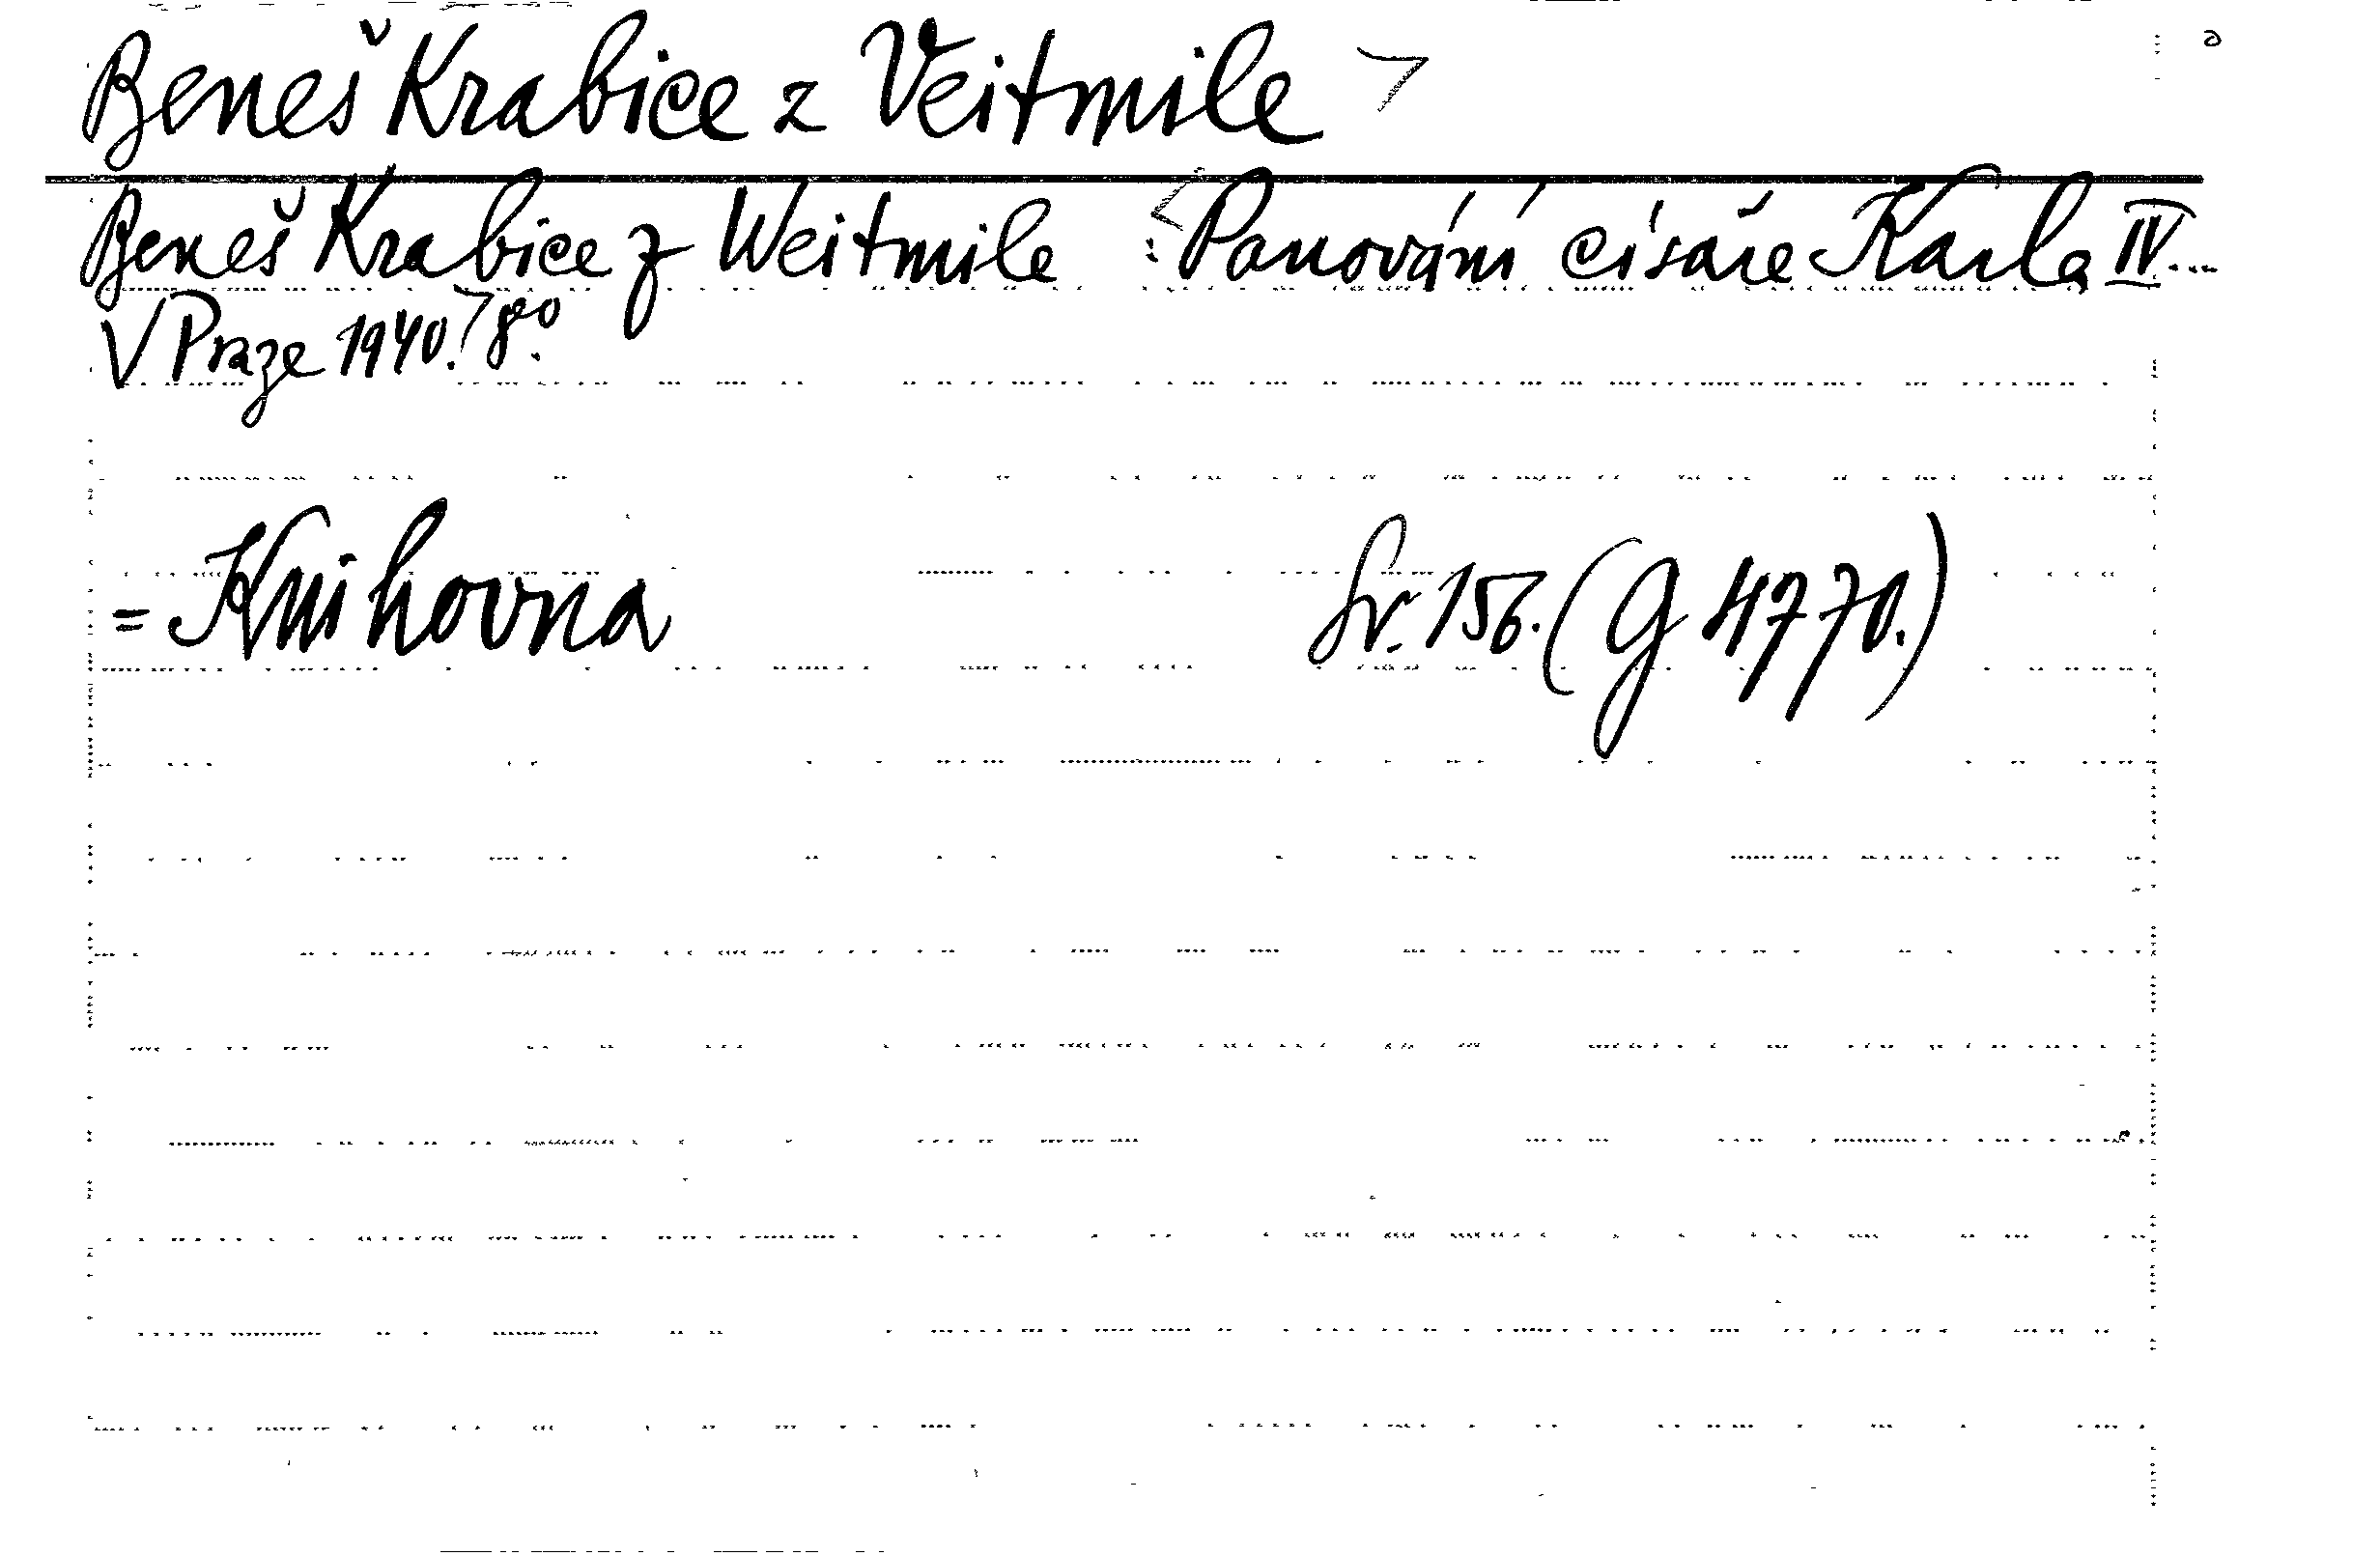 Beneš Krabice z Veitmile >
Beneš Krabice z Weitmile : <Panování císaře Karla IV...
V Praze 1940.> 8°.
= Knihovna Sv. 156. (G 4770.)